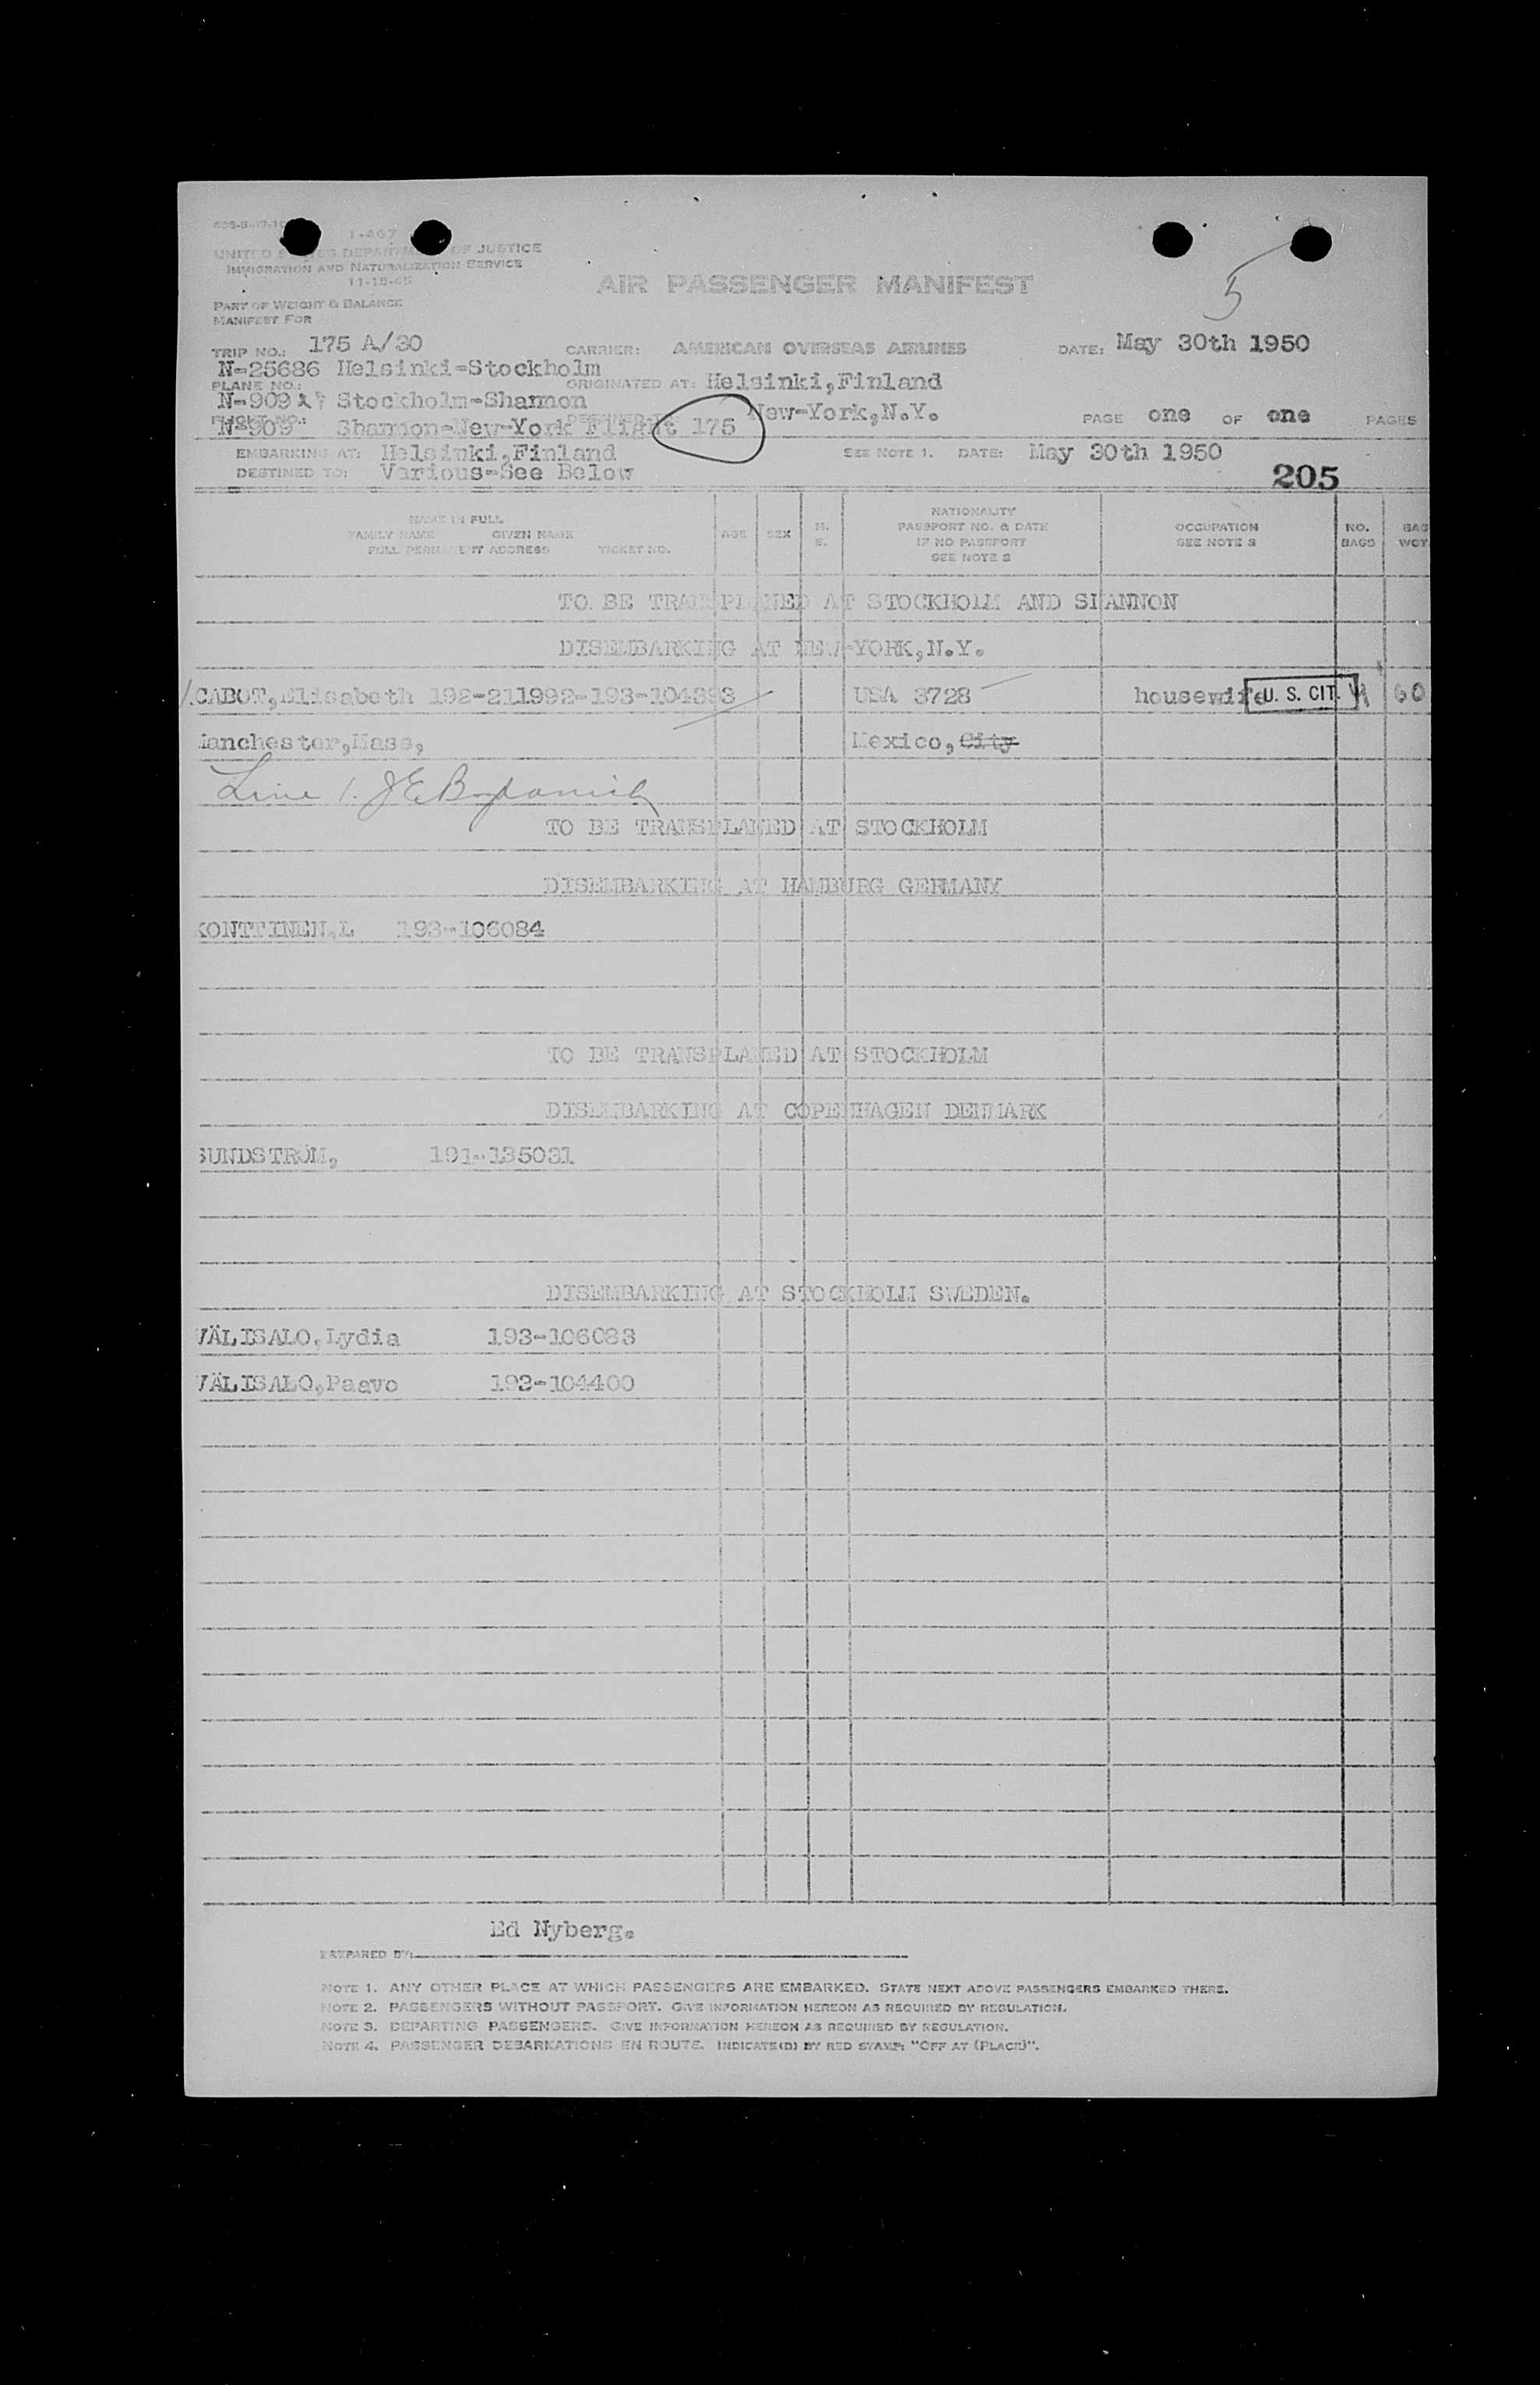 I-467
UNITED STATES DEPARTMENT OF JUSTICE
IMMIGRATION AND NATURALIZATION SERVICE
11-15-45
AIR PASSENGER MANIFEST
5
PART OF WEIGHT & BALANCE
MANIFEST FOR
TRIP NO.: 175 A/30 CARRIER: AMERICAN OVERSEAS AIRLINES DATE: May 30th 1950
N-25686 Helsinki-Stockholm
PLANE NO.: ORIGINATED AT: Helsinki,Finland
N-909 Stockholm-Shannon
New-York,N.Y. PAGE one OF one PAGES
N-909 Shannon-New-York Flight 175
EMBARKING AT: Helsinki,Finland SEE NOTE 1. DATE: May 30th 1950
DESTINED TO: Various-See Below 205
NAME IN FULL
FAMILY NAME GIVEN NAME
FULL PERMANENT ADDRESS TICKET NO.
AGE
SEX
M.
S.
NATIONALITY
PASSPORT NO. & DATE
IF NO PASSPORT
SEE NOTE 2
OCCUPATION
SEE NOTE 3
NO.
BAGS
BAG
WGT
TO BE TRANSPLANED AT STOCKHOLM AND SHANNON
DISEMBARKING AT NEW-YORK,N.Y.
1. CABOT,Elisabeth 192-211992-193-104393 USA 3728 housewife U. S. CIT. 60
Manchester,Mass, Mexico, City
Line 1.
TO BE TRANSPLANED AT STOCKHOLM
DISEMBARKING AT HAMBURG GERMANY
KONTTINEN,L 193-106084
TO BE TRANSPLANED AT STOCKHOLM
DISEMBARKING AT COPENHAGEN DENMARK
SUNDSTRÖM, 191-135031
DISEMBARKING AT STOCKHOLM SWEDEN.
VÄLISALO,Lydia 193-106083
VÄLISALO,Paavo 193-104400
Ed Nyberg.
PREPARED BY:
NOTE 1. ANY OTHER PLACE AT WHICH PASSENGERS ARE EMBARKED. STATE NEXT ABOVE PASSENGERS EMBARKED THERE.
NOTE 2. PASSENGERS WITHOUT PASSPORT. GIVE INFORMATION HEREON AS REQUIRED BY REGULATION.
NOTE 3. DEPARTING PASSENGERS. GIVE INFORMATION HEREON AS REQUIRED BY REGULATION.
NOTE 4. PASSENGER DEBARKATIONS EN ROUTE. INDICATE(D) BY RED STAMP: "OFF AT (PLACE)".